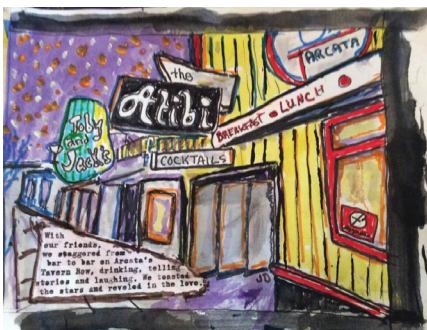 ARCATA
the
Alibi
BREAKFAST • LUNCH
Toby
and
Jack's
COCKTAILS
With
our friends,
we staggered from
bar to bar on Arcata's
Tavern Row, drinking, telling
stories and laughing. We toasted
the stars and reveled in the love.
JD